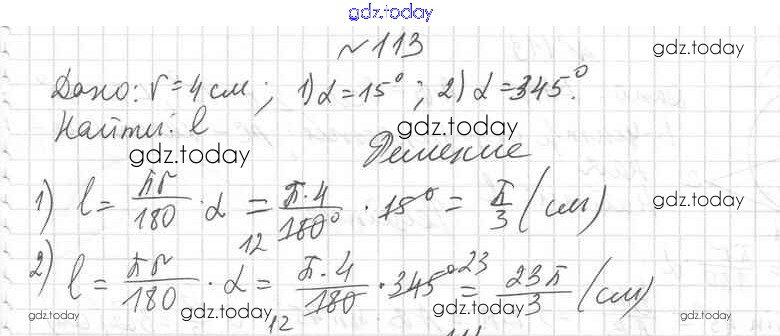 gdz.today
№113
gdz.today
Дано: r=4см; 1) α=15°; 2) α=345°.
Найти: l
gdz.today
gdz.today
Решение
1) l = πr/180 · α = π·4/180° · 15° = π/3 (см)
12
gdz.today
gdz.today
2) l = πr/180 · α = π·4/180 · 345° 23 = 23π/3 (см)
12
gdz.today
gdz.today
gdz.today